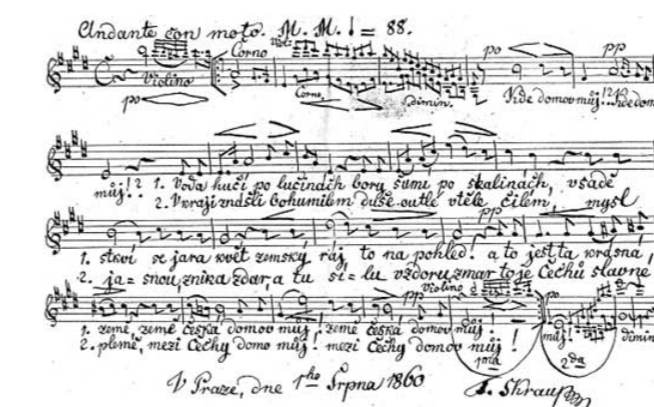 Andante con moto. M. M. ♩ = 88.
Corno Viol:
Violino Corno po pp
po dimin. Kde domov můj!? Kde dom
můj!? 1. Voda hučí po lučinách bory šumí po skalinách, v sadě
2. V kraji znáš-li bohumilém duše outlé v těle čilém, mysl
1. stkví se jara květ zemský ráj to na pohled! a to jest ta krásná,
pp
2. ja=snou, znik a zdar, a tu sí=lu vzdoru zmar to je Čechů slavné
pp Violino po
1. země, země česká domov můj! země česká, domov můj! můj! dimin
2. plémě, mezi Čechy domov můj! mezi Čechy domov můj!
1ma 2da
V Praze, dne 1ho Srpna 1860 F. Škraup